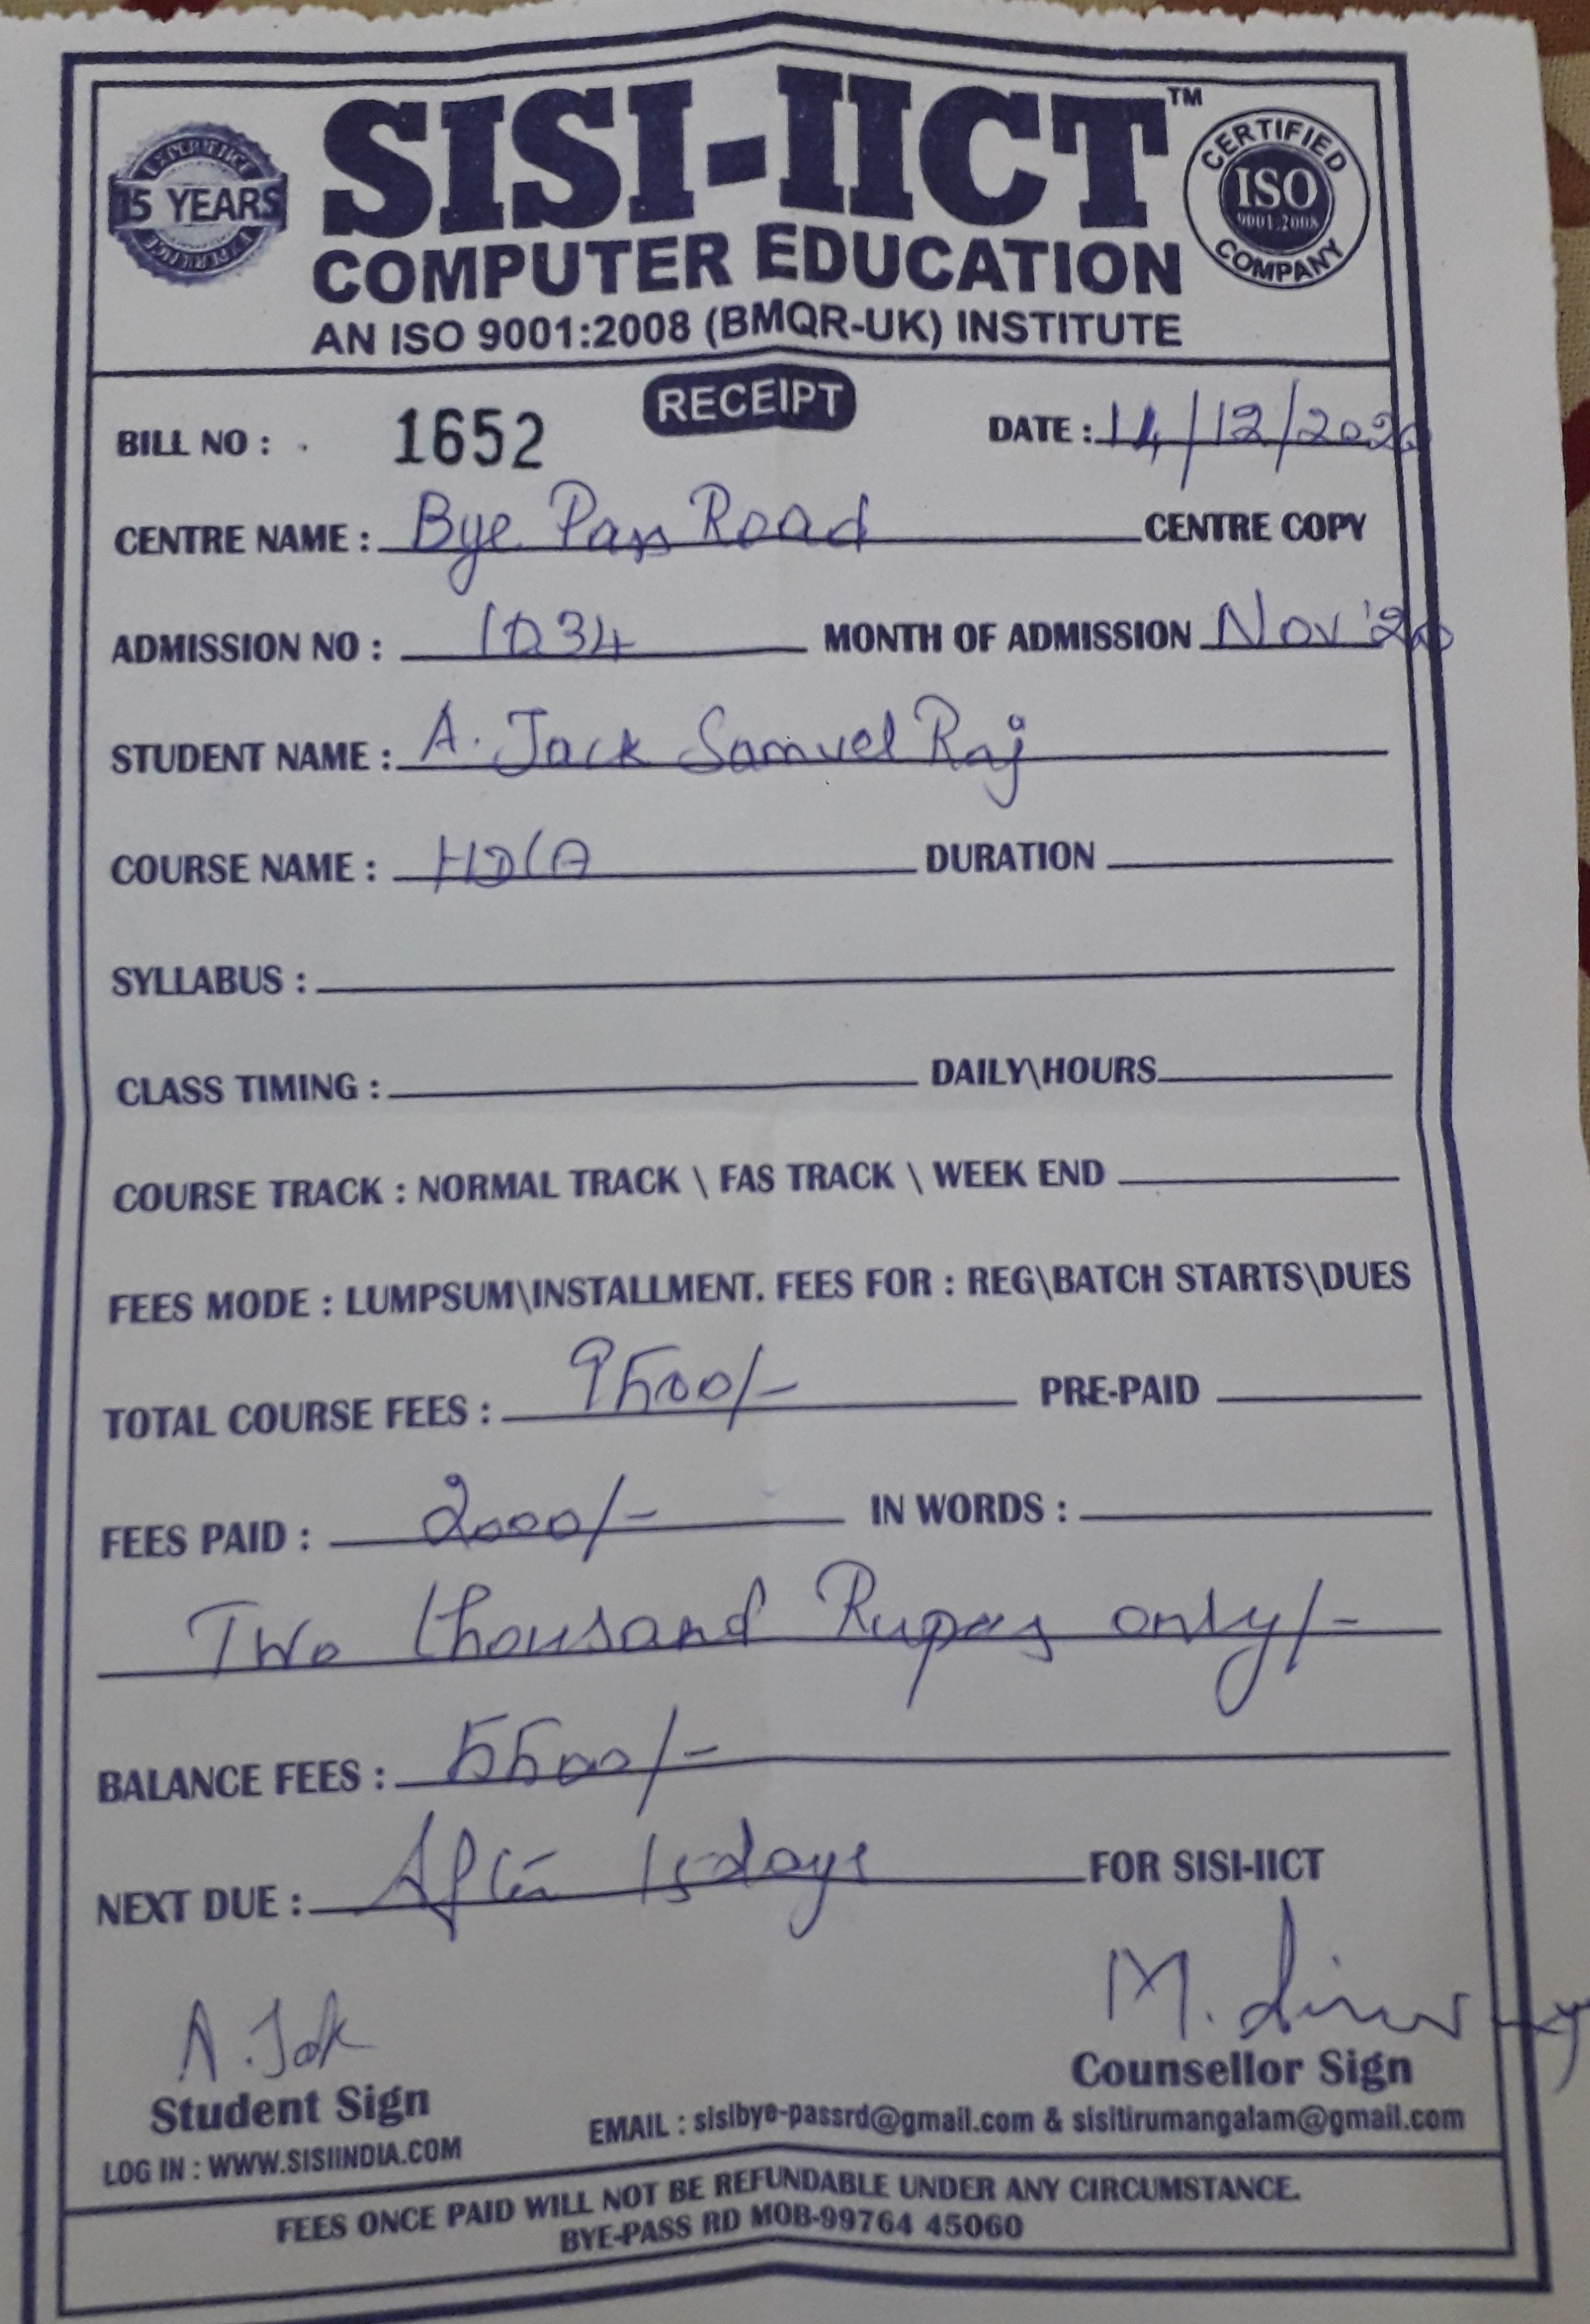 SISI-IICT™
COMPUTER EDUCATION
AN ISO 9001:2008 (BMQR-UK) INSTITUTE
EXPERIENCE
15 YEARS
EXPERIENCE
CERTIFIED
ISO
9001:2008
COMPANY
RECEIPT
BILL NO : 1652 DATE : 14/12/2020
CENTRE NAME : Bye Pass Road CENTRE COPY
ADMISSION NO : 1034 MONTH OF ADMISSION Nov '20
STUDENT NAME : A. Jack Samuel Raj
COURSE NAME : HDCA DURATION
SYLLABUS :
CLASS TIMING : DAILY\HOURS
COURSE TRACK : NORMAL TRACK \ FAS TRACK \ WEEK END
FEES MODE : LUMPSUM\INSTALLMENT. FEES FOR : REG\BATCH STARTS\DUES
TOTAL COURSE FEES : 9500/- PRE-PAID
FEES PAID : 2000/- IN WORDS :
Two thousand Rupees only/-
BALANCE FEES : 5500/-
NEXT DUE : After 15 days FOR SISI-IICT
A. Jak M.
Student Sign Counsellor Sign
LOG IN : WWW.SISIINDIA.COM EMAIL : sisibye-passrd@gmail.com & sisitirumangalam@gmail.com
FEES ONCE PAID WILL NOT BE REFUNDABLE UNDER ANY CIRCUMSTANCE.
BYE-PASS RD MOB-99764 45060